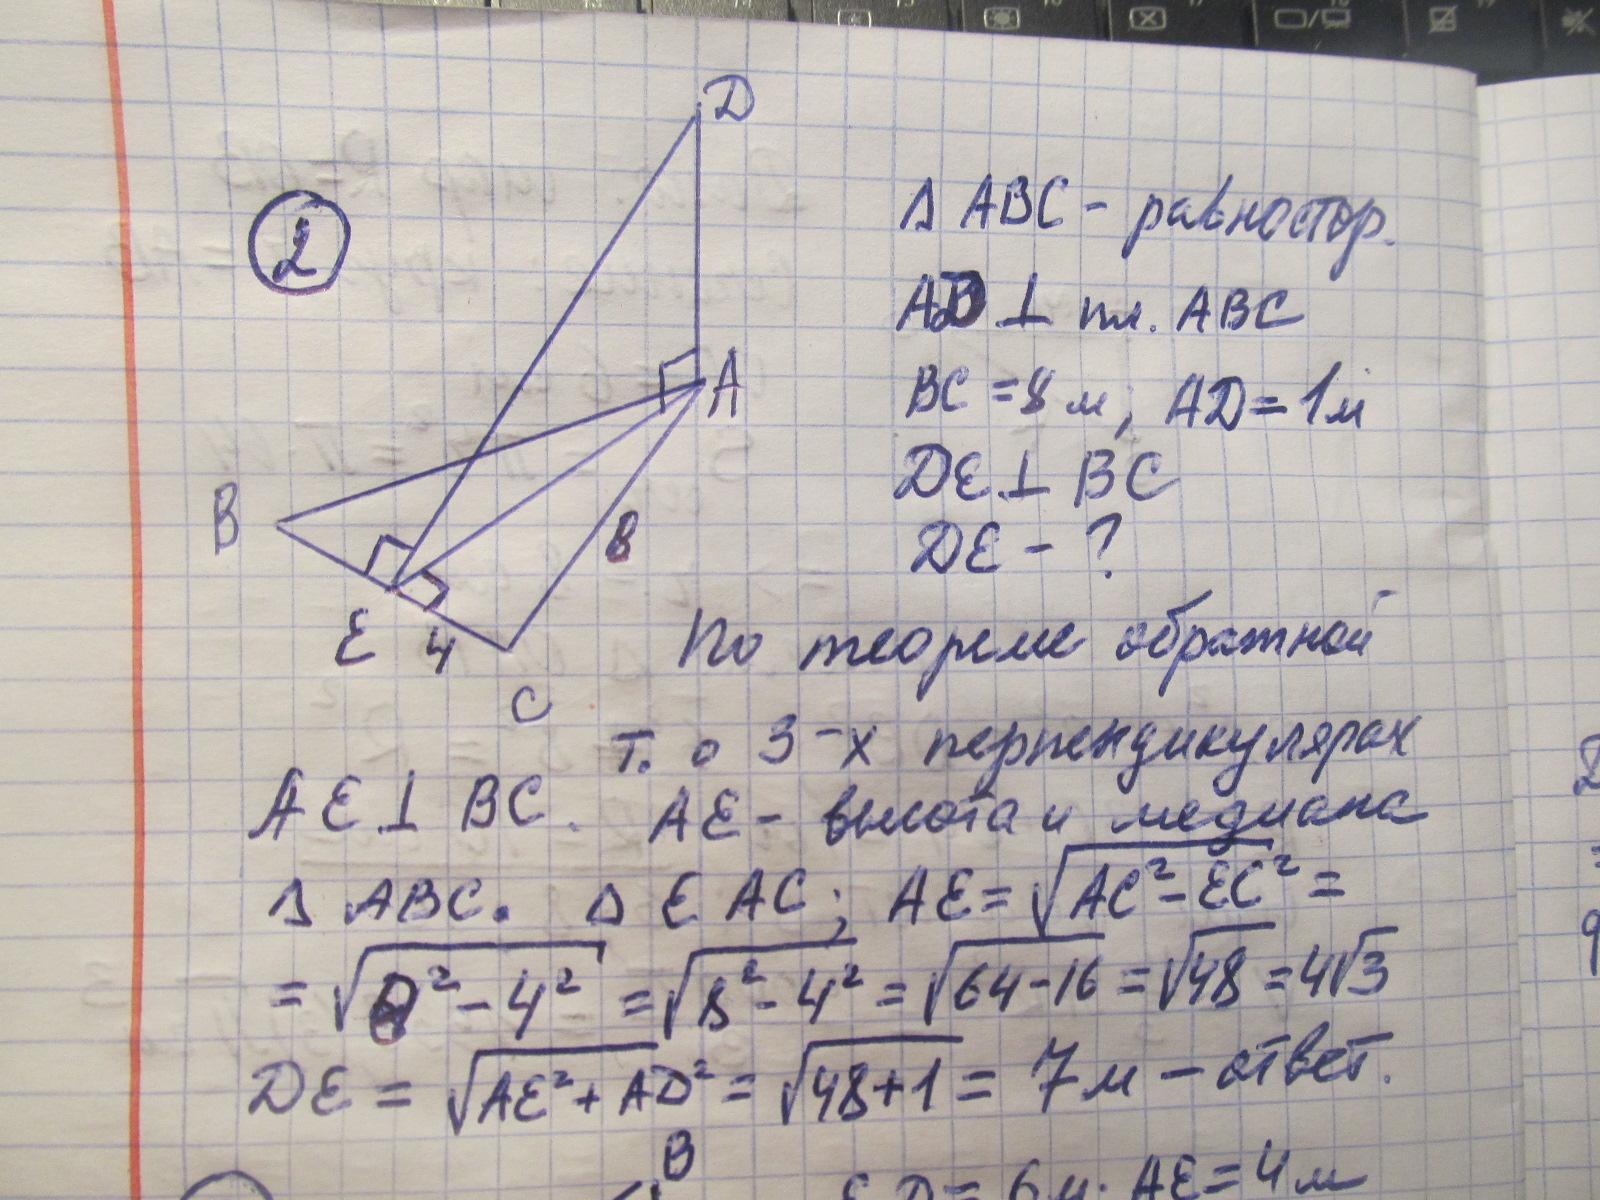 2
D
A
B
8
E
4
C
Δ ABC - равностор.
AD ⊥ пл. ABC
BC = 8 м; AD = 1 м
DE ⊥ BC
DE - ?
По теореме обратной
т. о 3-х перпендикулярах
AE ⊥ BC. AE - высота и медиана
Δ ABC. Δ EAC; AE = √(AC² - EC²) =
= √(8² - 4²) = √(8² - 4²) = √(64 - 16) = √48 = 4√3
DE = √(AE² + AD²) = √(48 + 1) = 7 м - ответ.
B
ED = 6 м. AE = 4 м